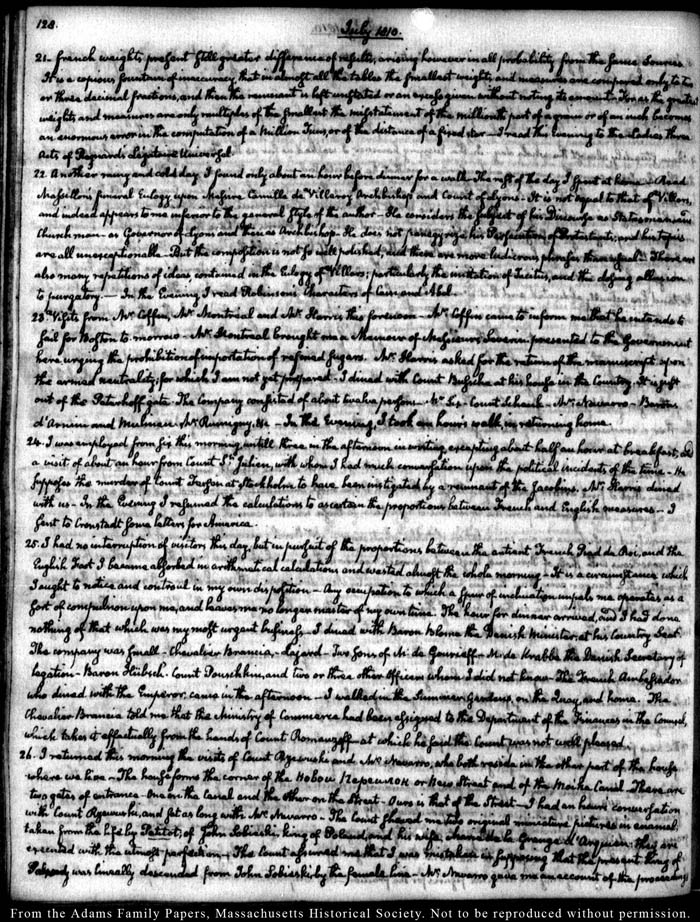 128.
July 1810.
21. French weights, present still greater difference of results, arising however in all probability from the same sources
It is a copious fountain of inaccuracy, that in almost all the tables the smallest weights and measures are compared only to two
or three decimal fractions, and then the remnant is left unstated or an excess given without noting its amount. For as the greater
weights and measures are only multiples of the smallest the misstatement of the millionth part of a gram or of an inch becomes
an enormous error in the computation of a Million Tuns, or of the distance of a fixed star. I read this evening to the Ladies three
Acts of Regnard's Legataire Universel.
22. Another rainy and cold day. I found only about an hour before dinner for a walk. The rest of the day I spent at home. Read
Massillon's funeral Eulogy upon Messire Camille de Villeroy, Archbishop and Count of Lyons. It is not equal to that of Villars,
and indeed appears to me inferior to the general style of the author. He considers the subject of his Discourse as Statesman and
Churchman as Governor of Lyons and then as Archbishop. He does not panegyrize his Persecution of Protestants, and his topics
are all unexceptionable. But the composition is not so well polished, and there are more ludicrous phrases than usual. There are
also many repetitions of ideas, contained in the Eulogy of Villars; particularly the imitation of Tacitus, and the allusion
to purgatory. — In the Evening I read Robinson's Characters of Cain and Abel.
23. Visits from Mr. Coffin, Mr. Montréal and Mr. Harris this forenoon. Mr. Coffin came to inform me that he intends to
sail for Boston to-morrow. Mr. Montréal brought me a Memoir of Messieurs presented to the Government
here, urging the prohibition of importation of refined sugars. Mr. Harris asked for the return of the manuscript upon
the armed neutrality, for which I am not yet prepared. I dined with Count Bussche at his house in the Country. It is just
out of the Peterhoff gate. The company consisted of about twelve persons. Count Schenk. Mr. Navarro. Barons
d'Arnim and Mr. Rumigny, &c. — In the Evening, I took an hour's walk, in returning home.
24. I was employed from six this morning, untill three in the afternoon in writing, excepting about half an hour at breakfast, and
a visit of about an hour from Count St. Julien, with whom I had much conversation upon the political incidents of the time. He
supposes the murder of Count Fersen at Stockholm to have been instigated by a remnant of the Jacobins. Mr. Harris dined
with us. In the Evening I resumed the calculations to ascertain the proportions between French and English measures. I
sent to Cronstadt some letters for America.
25. I had no interruption of visitors this day, but in pursuit of the proportions between the antient French Pied de Roi, and the
English Foot I became absorbed in arithmetical calculations and wasted almost the whole morning. It is a circumstance which
I ought to notice and controul in my own disposition. Any occupation to which a spur of inclination impels me operates as a
sort of compulsion upon me, and leaves me no longer master of my own time. The hour for dinner arrived, and I had done
nothing of that which was my most urgent business. I dined with Baron Blome the Danish Minister, at his Country Seat.
The company was small. Chevalier Brancia, Two Sons of Mr. de Gourieff. Mr. de Krabbe the Danish Secretary of
Legation. Baron Hübsch. Count Pouschkin, and two or three other Officers whom I did not know. The French Ambassador
who dined with the Emperor, came in the afternoon. I walked in the Summer Gardens, on the Quay, and home. The
Chevalier Brancia told me that the Ministry of Commerce had been assigned to the Department of the Finances in the Council,
which takes it effectually from the hands of Count Romanzoff at which he said the Count was not well pleased.
26. I returned this morning the visits of Count Rzewuski and Mr. Navarro, who both reside in the other part of the house
where we live. The house forms the corner of the Новои Переулок or New Street and of the Moika Canal. There are
two gates of entrance. One on the Canal and the other on the Street. Ours is that of the Street. I had an hour's conversation
with Count Rzewuski, and sat as long with Mr. Navarro. The Count shewed me two original miniature pictures in enamel,
taken from the life by Petitot; of John Sobieski, king of Poland, and his wife, la Grange d'Arquien; they are
executed with the utmost perfection. The Count assured me that I was mistaken in supposing that the present king of
was lineally descended from John Sobieski, by the female line. Mr. Navarro gave me an account of the proceedings
From the Adams Family Papers, Massachusetts Historical Society. Not to be reproduced without permission.